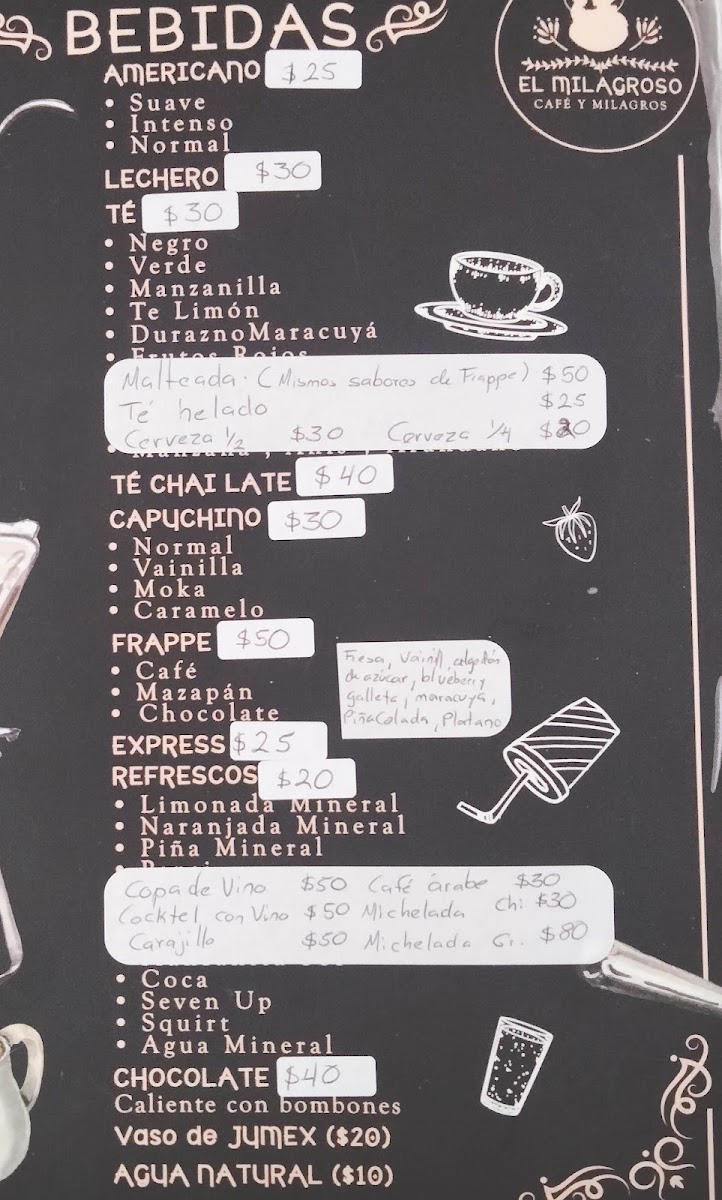 BEBIDAS
EL MILAGROSO
CAFÉ Y MILAGROS
AMERICANO $25
• Suave
• Intenso
• Normal
LECHERO $30
TÉ $30
• Negro
• Verde
• Manzanilla
• Te Limón
• DuraznoMaracuyá
• Frutos Rojos
Malteada. (Mismos sabores de Frappe) $50
Té helado $25
Cerveza 1/2 $30 Cerveza 1/4 $20
TÉ CHAI LATE $40
CAPUCHINO $30
• Normal
• Vainilla
• Moka
• Caramelo
FRAPPE $50
• Café
• Mazapán
• Chocolate
Fresa, Vainill, algodón
de azúcar, blueberry
galleta, maracuyá,
PiñaColada, Platano
EXPRESS $25
REFRESCOS $20
• Limonada Mineral
• Naranjada Mineral
• Piña Mineral
Copa de Vino $50 Café árabe $30
Cocktel con Vino $50 Michelada Ch: $30
Carajillo $50 Michelada Gr. $80
• Coca
• Seven Up
• Squirt
• Agua Mineral
CHOCOLATE $40
Caliente con bombones
Vaso de JUMEX ($20)
AGUA NATURAL ($10)